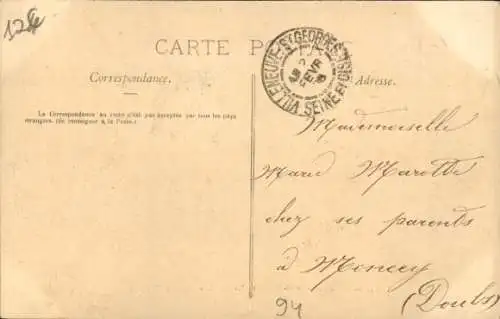 12€
CARTE POSTALE
VILLENEUVE-ST-GEORGES SEINE-ET-OISE
FEVR
Correspondance.
Adresse.
La Correspondance au recto n'est pas acceptée par tous les pays
étrangers. (Se renseigner à la Poste.)
Mademoiselle
Marie Marotte
chez ses parents
à Moncey
(Doubs)
94